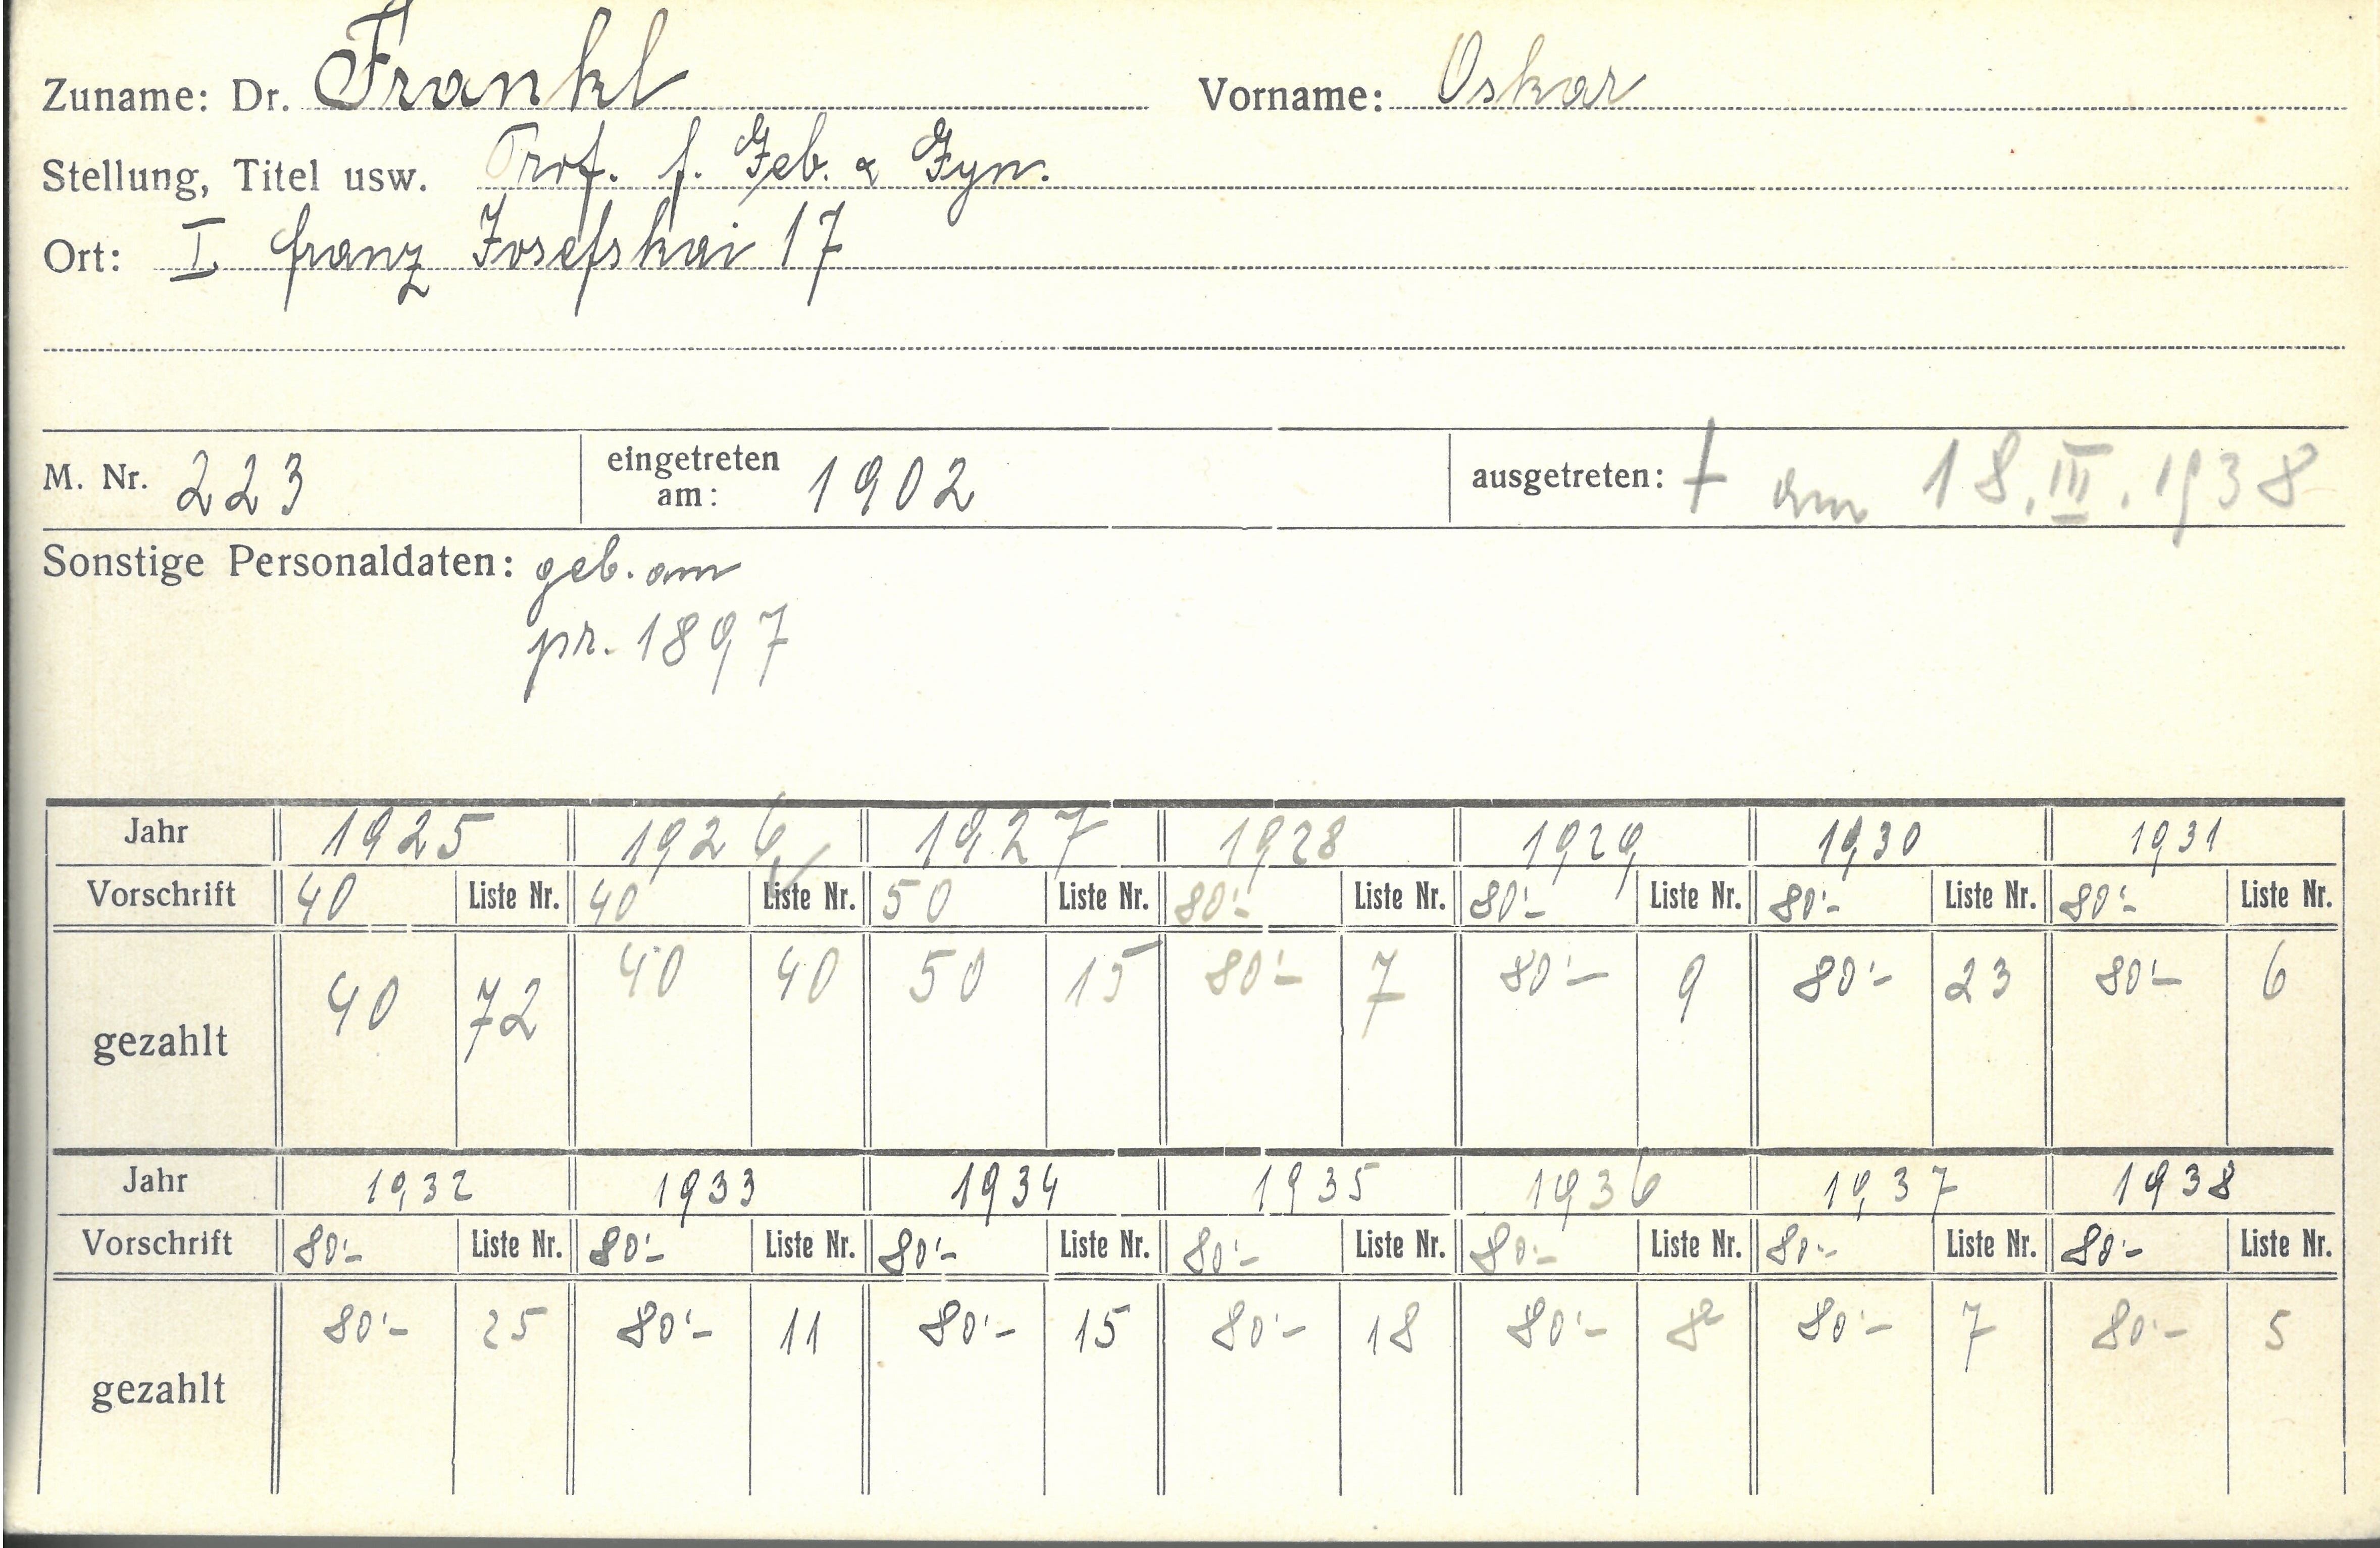 Zuname: Dr. Frankl Vorname: Oskar
Stellung, Titel usw. Prof. f. Geb. & Gyn.
Ort: I. Franz Josefskai 17
M. Nr. 223 eingetreten am: 1902 ausgetreten: † am 18.III.1938
Sonstige Personaldaten: geb. am
pr. 1897
Jahr 1925 1926 1927 1928 1929 1930 1931
Vorschrift 40 Liste Nr. 40 Liste Nr. 50 Liste Nr. 80'- Liste Nr. 80'- Liste Nr. 80'- Liste Nr. 80'- Liste Nr.
gezahlt 40 72 40 40 50 15 80'- 7 80'- 9 80'- 23 80'- 6
Jahr 1932 1933 1934 1935 1936 1937 1938
Vorschrift 80'- Liste Nr. 80'- Liste Nr. 80'- Liste Nr. 80'- Liste Nr. 80'- Liste Nr. 80'- Liste Nr. 80'- Liste Nr.
gezahlt 80'- 25 80'- 11 80'- 15 80'- 18 80'- 8 80'- 7 80'- 5